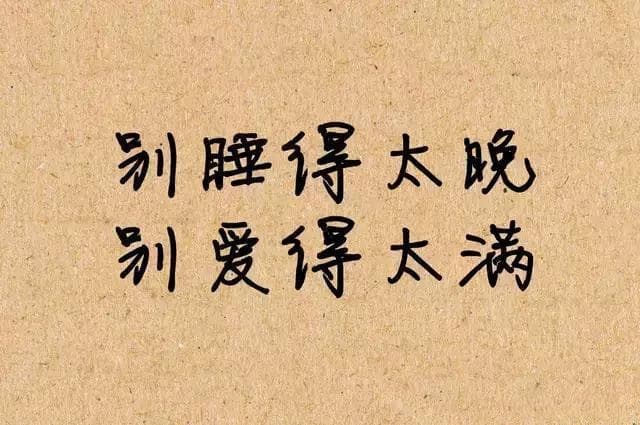 别睡得太晚
别爱得太满